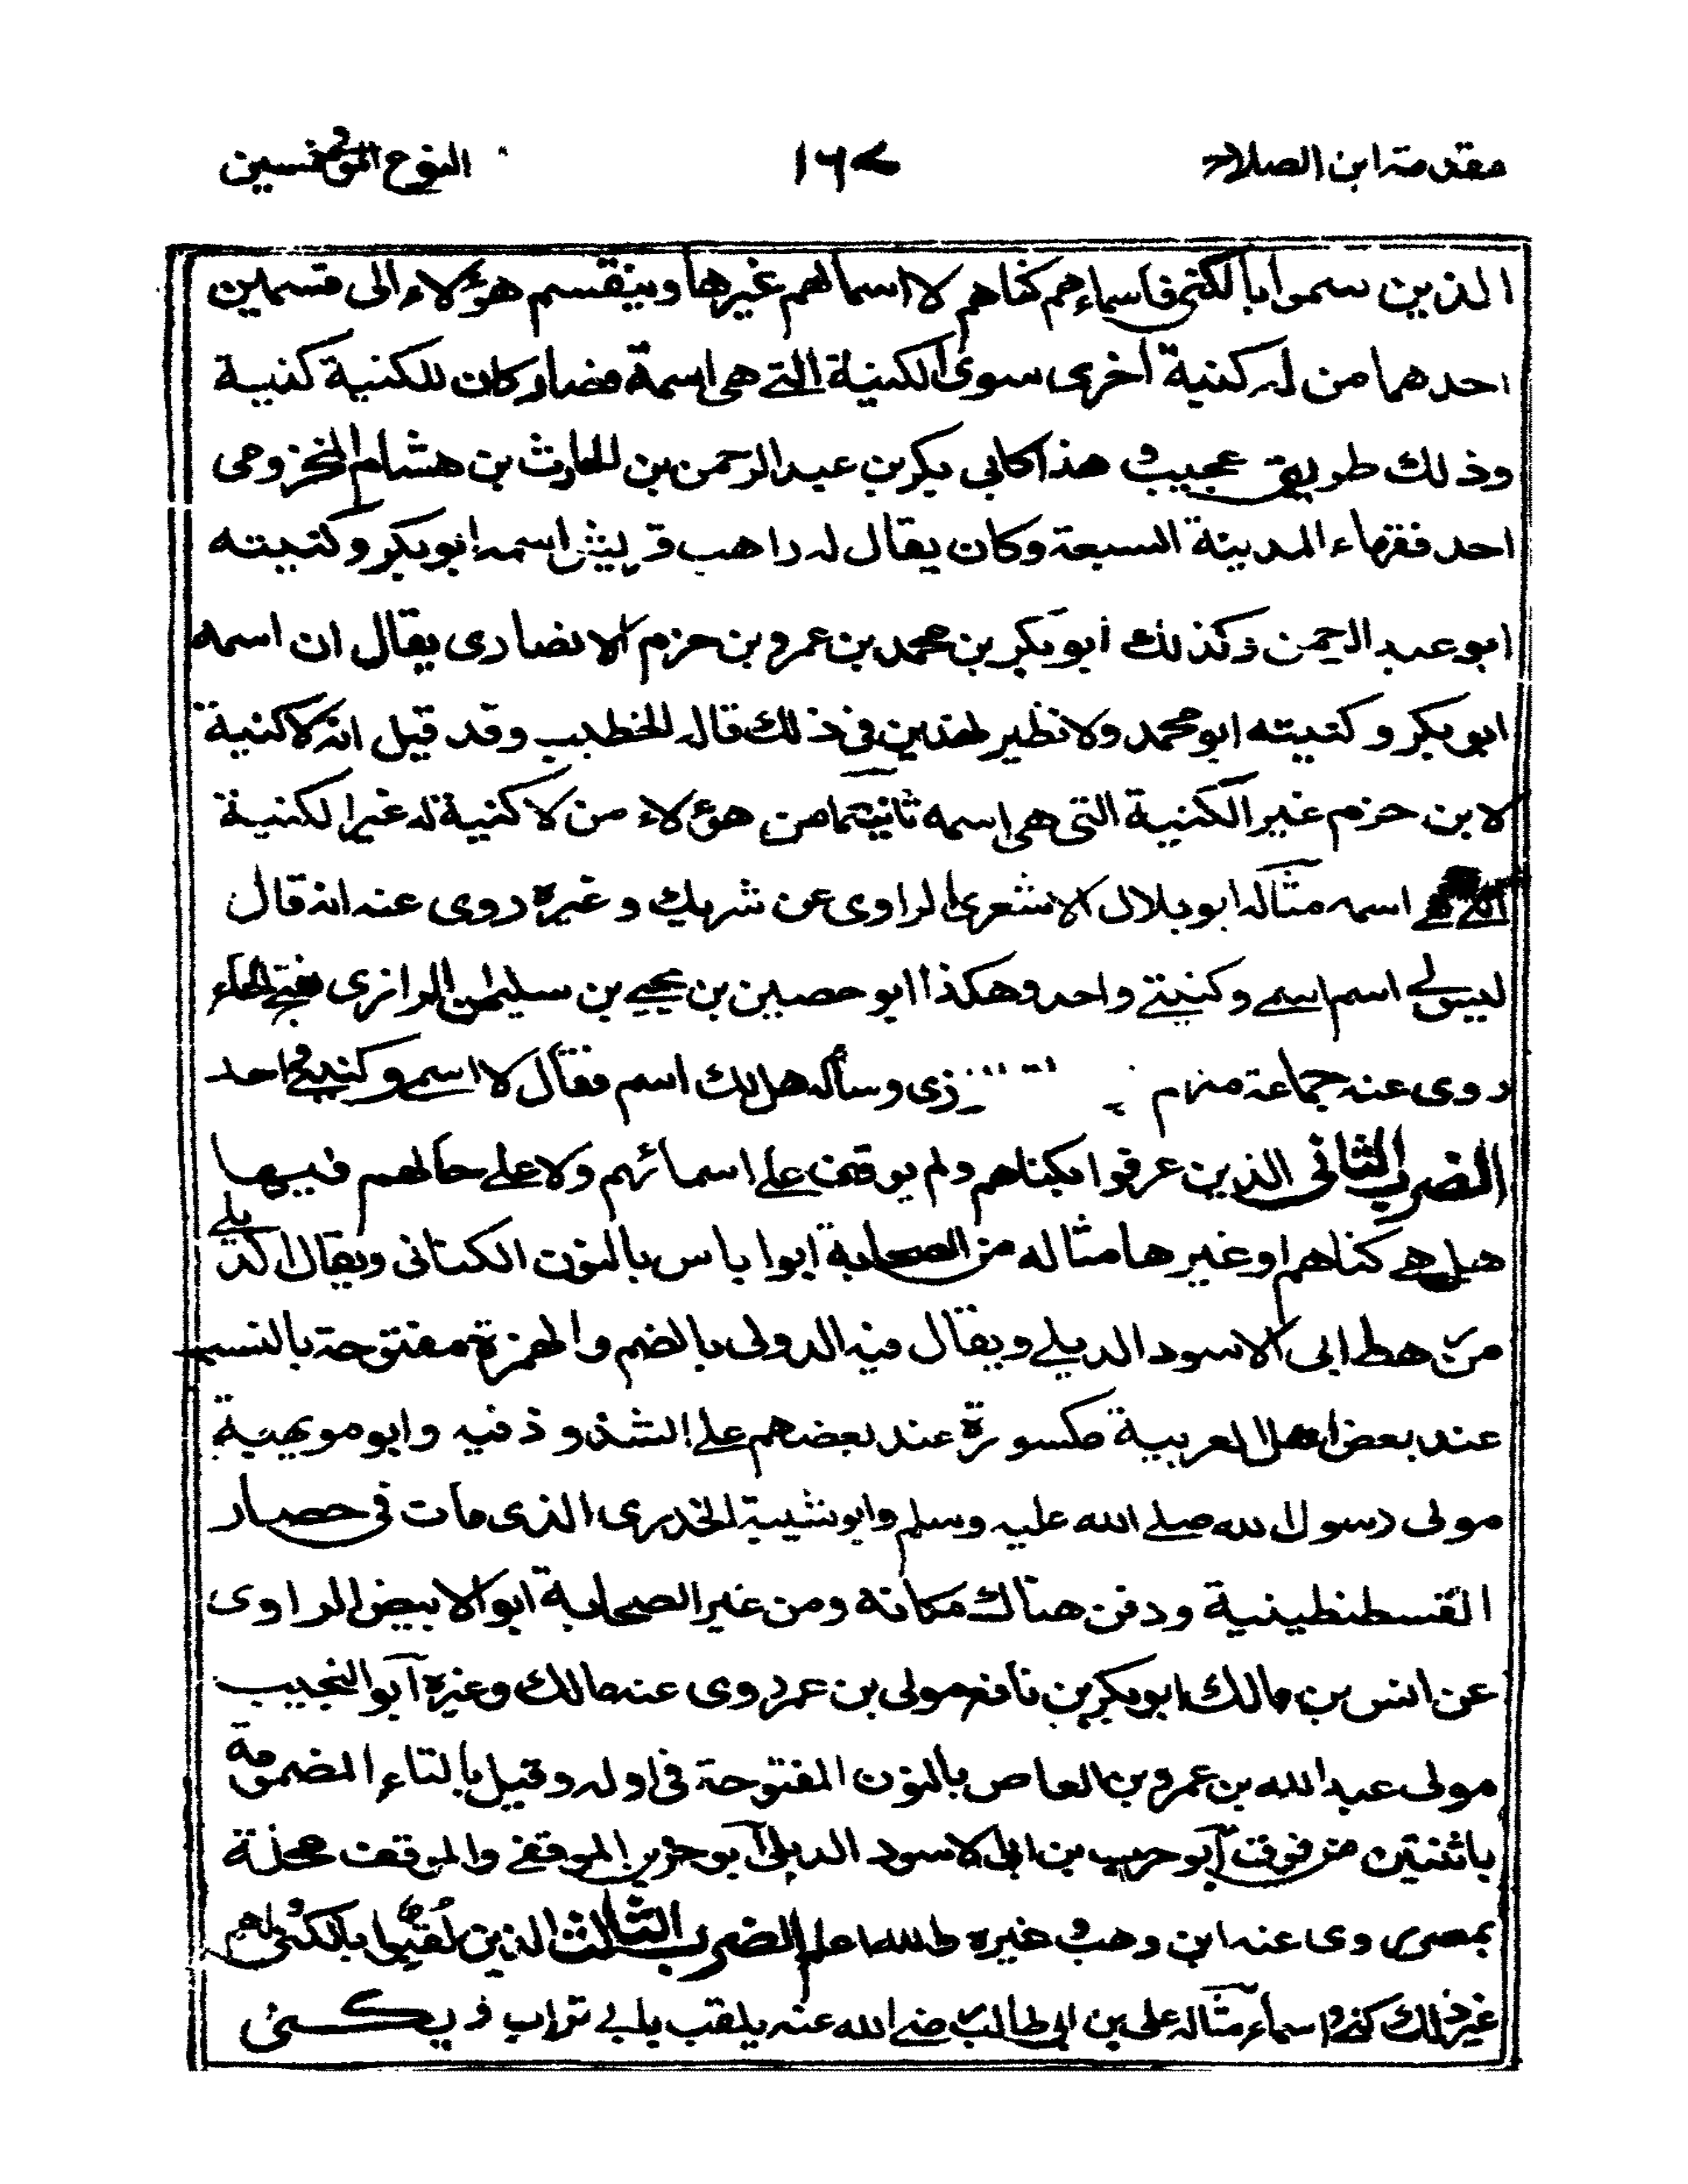 مقدمة ابن الصلاح ١٦٧ النوع الموفى خمسين
الذين سموا بالكنى فاسماءهم كناهم لا اسما لهم غيرها وينقسم هؤلاء الى قسمين
احدهما من له كنية اخرى سوى الكنية التى هى اسمه فصار وكان للكنية كنية
وذلك طريق عجيب وهذا كابى بكر بن عبد الرحمن بن الحارث بن هشام المخزومى
احد فقهاء المدينة السبعة وكان يقال له راهب قريش اسمه ابو بكر وكنيته
ابو عبد الرحمن وكذلك ابو بكر بن محمد بن عمرو بن حزم الانصارى يقال ان اسمه
ابو بكر وكنيته ابو محمد ولا نظير لهذين فى ذلك قاله الخطيب وقد قيل انه لا كنية
لابن حزم غير الكنية التى هى اسمه ثانيتهما من هؤلاء من لا كنية له غير الكنية
التى هى اسمه مثاله ابو بلال الاشعرى الراوى عن شريك وغيره روى عنه انه قال
ليس لى اسم اسمى وكنيتى واحد وهكذا ابو حصين بن يحيى بن سليمن الرازى بفتح الحاء
روى عنه جماعة منهم زى وسأله هل لك اسم فقال لا اسمى وكنيتى واحد
الضرب الثانى الذين عرفوا بكناهم ولم يوقف على اسمائهم ولا على حالهم فيها
هل هى كناهم او غيرها مثاله من الصحابة ابوا ياس بالنون الكنانى ويقال الديلى
من رهط ابى الاسود الديلى ويقال فيه الدولى بالضم والهمزة مفتوحة بالنسب
عند بعض اهل العربية مكسورة عند بعضهم على الشذوذ فيه وابو مويهبة
مولى رسول الله صلى الله عليه وسلم وابو شيبة الخدرى الذى مات فى حصار
القسطنطينية ودفن هناك مكانه ومن غير الصحابة ابو الابيض الراوى
عن انس بن مالك ابو بكر بن نافع مولى بن عمر روى عنه مالك وغيره ابو النجيب
مولى عبد الله بن عمرو بن العاص بالنون المفتوحة فى اوله وقيل بالتاء المضمومة
باثنتين من فوق ابو حرب بن ابى الاسود الديلى ابو حريز الموقفى والموقف محلة
بمصر روى عنه ابن وهب وغيره والله اعلم الضرب الثالث الذين لقبوا بالكنى ولهم
غير ذلك كنى واسماء مثاله على بن ابى طالب رضى الله عنه يلقب بابى تراب و يكنى